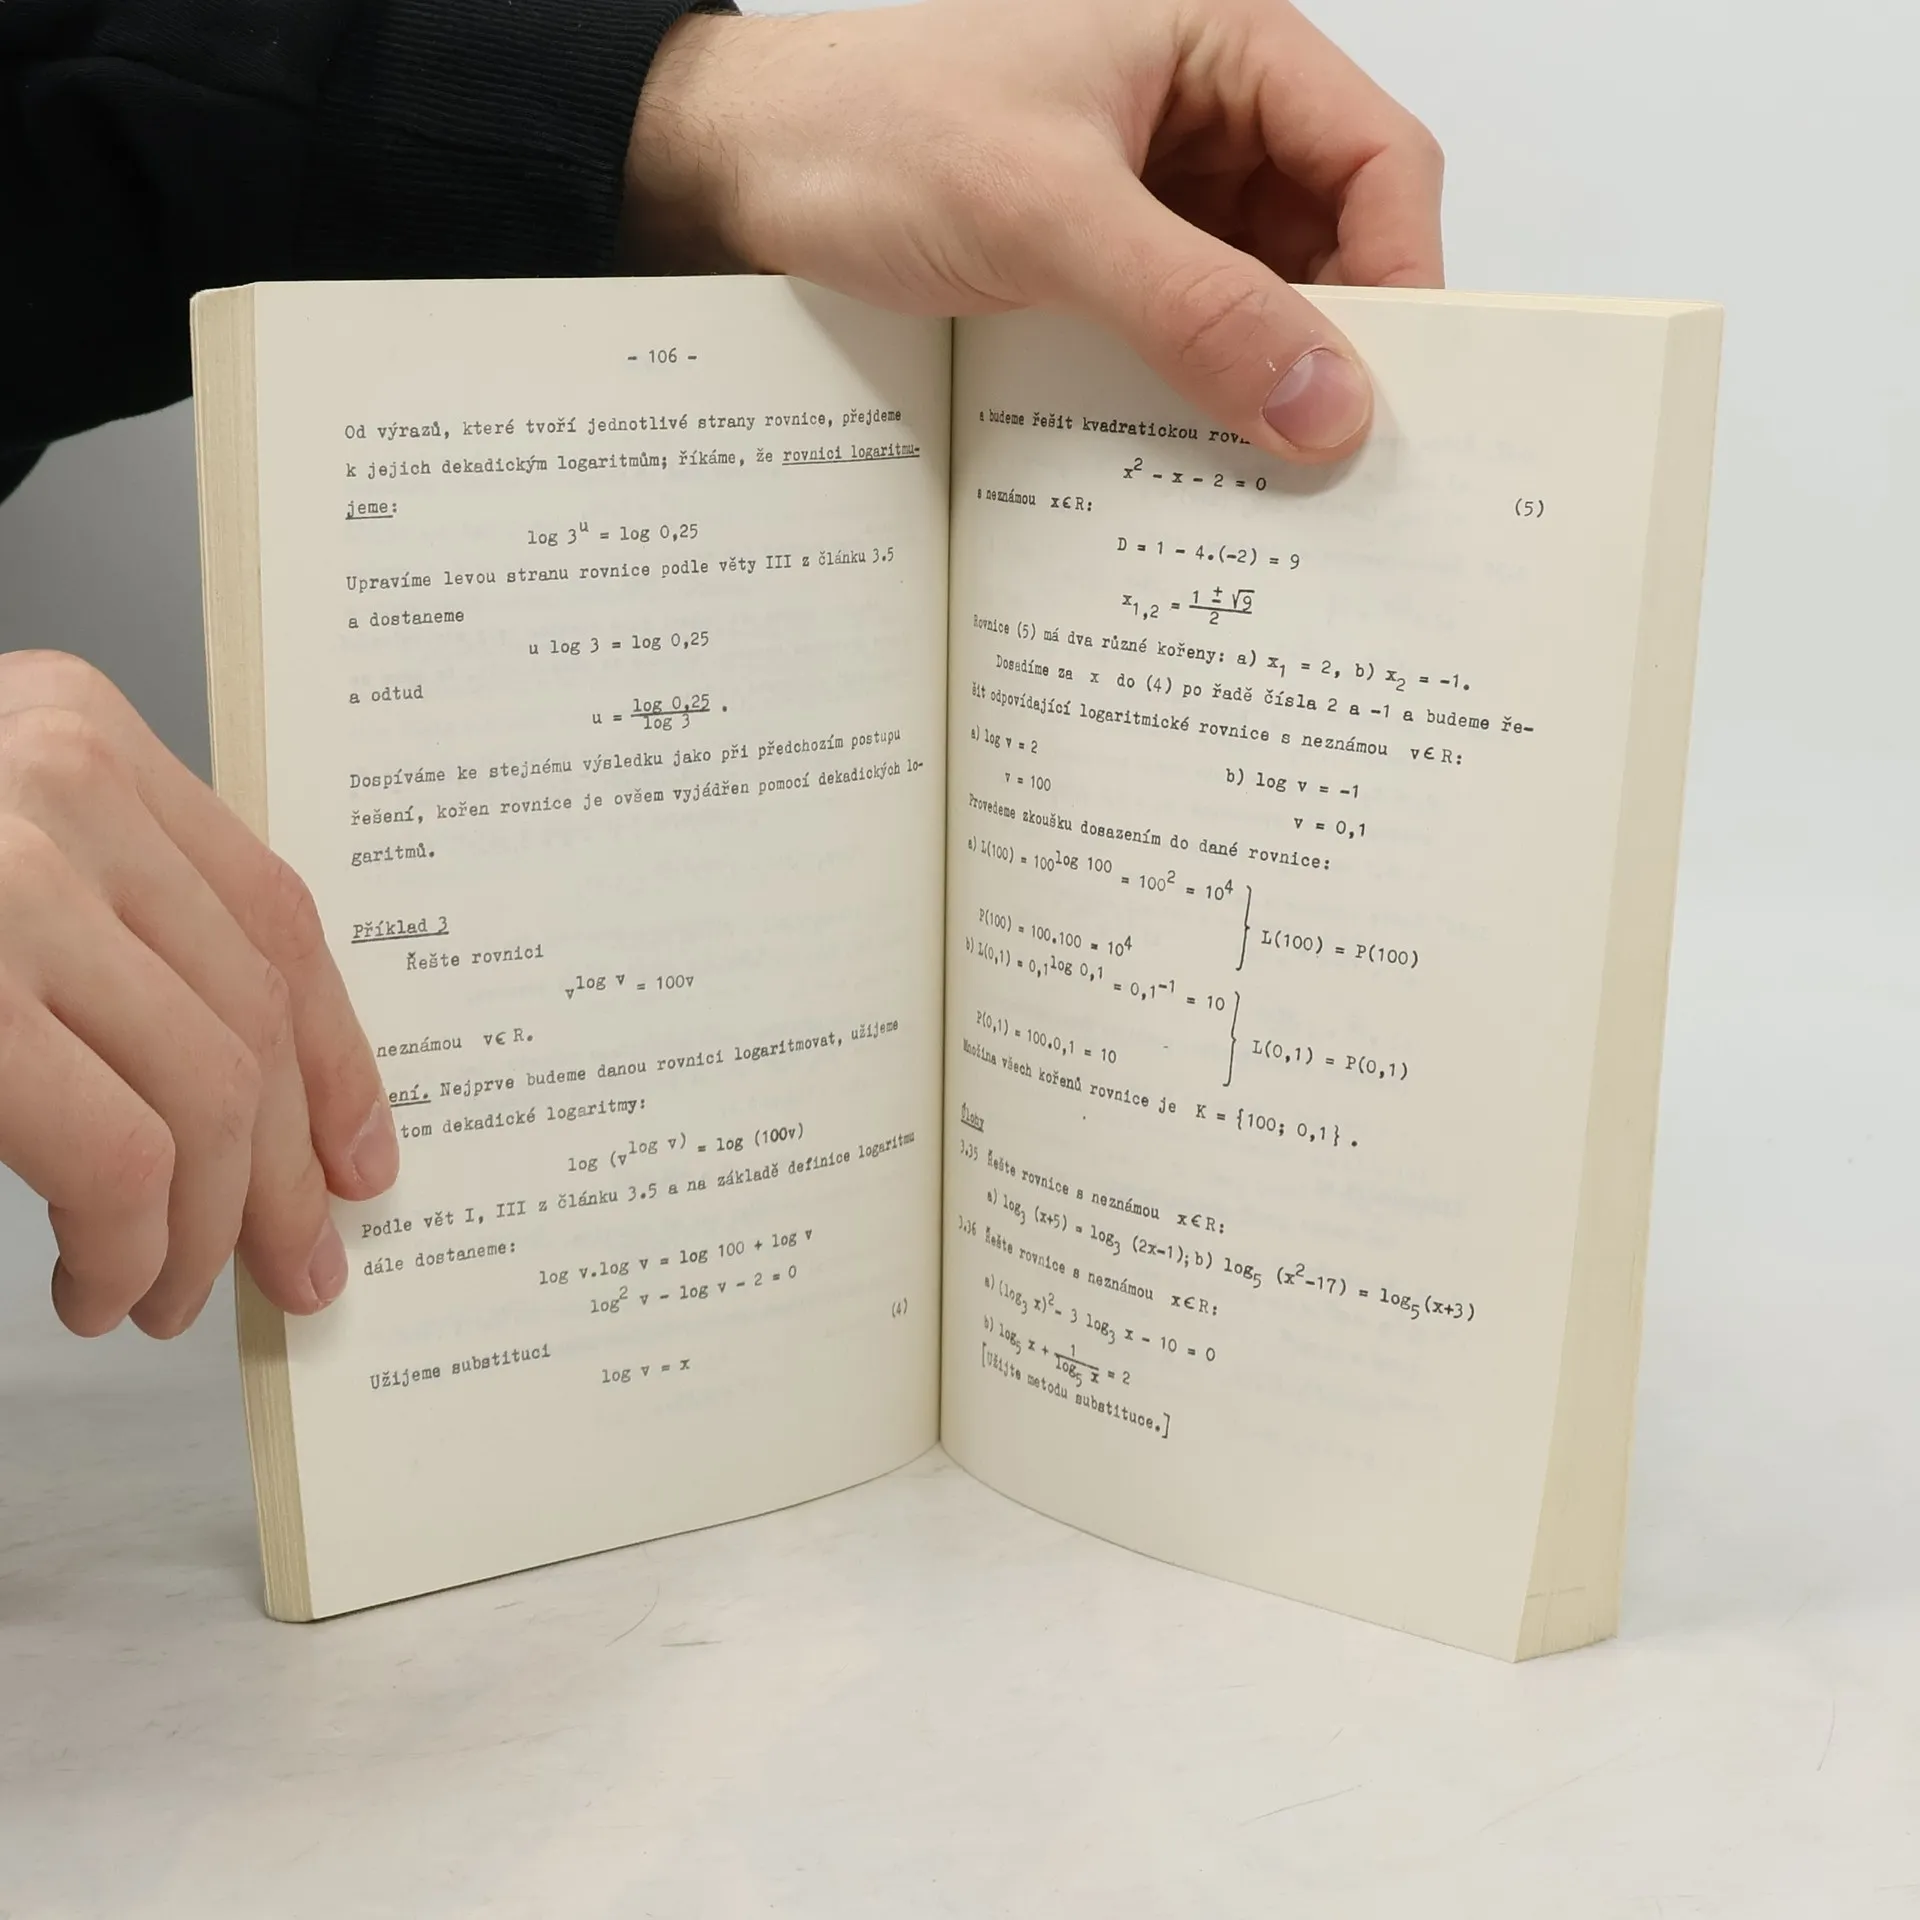 - 106 -
Od výrazů, které tvoří jednotlivé strany rovnice, přejdeme
k jejich dekadickým logaritmům; říkáme, že rovnici logaritmu-
jeme:
log 3^u = log 0,25
Upravíme levou stranu rovnice podle věty III z článku 3.5
a dostaneme
u log 3 = log 0,25
a odtud
u = log 0,25 / log 3 .
Dospíváme ke stejnému výsledku jako při předchozím postupu
řešení, kořen rovnice je ovšem vyjádřen pomocí dekadických lo-
garitmů.
Příklad 3
Řešte rovnici
v^log v = 100v
neznámou v∈R.
ení. Nejprve budeme danou rovnici logaritmovat, užijeme
tom dekadické logaritmy:
log (v^log v) = log (100v)
Podle vět I, III z článku 3.5 a na základě definice logaritmu
dále dostaneme:
log v.log v = log 100 + log v
log² v - log v - 2 = 0 (4)
Užijeme substituci
log v = x
a budeme řešit kvadratickou
x² - x - 2 = 0 (5)
s neznámou x∈R:
D = 1 - 4.(-2) = 9
x₁,₂ = 1 ± √9 / 2
Rovnice (5) má dva různé kořeny: a) x₁ = 2, b) x₂ = -1.
Dosadíme za x do (4) po řadě čísla 2 a -1 a budeme ře-
šit odpovídající logaritmické rovnice s neznámou v∈R:
a) log v = 2 b) log v = -1
v = 100 v = 0,1
Provedeme zkoušku dosazením do dané rovnice:
a) L(100) = 100^log 100 = 100² = 10⁴
P(100) = 100.100 = 10⁴ } L(100) = P(100)
b) L(0,1) = 0,1^log 0,1 = 0,1⁻¹ = 10
P(0,1) = 100.0,1 = 10 } L(0,1) = P(0,1)
Množina všech kořenů rovnice je K = {100; 0,1}.
Úlohy
3.35 Řešte rovnice s neznámou x∈R:
a) log₃ (x+5) = log₃ (2x-1); b) log₅ (x²-17) = log₅(x+3)
3.36 Řešte rovnice s neznámou x∈R:
a) (log₃ x)² - 3 log₃ x - 10 = 0
b) log₅ x + 1 / log₅ x = 2
[Užijte metodu substituce.]